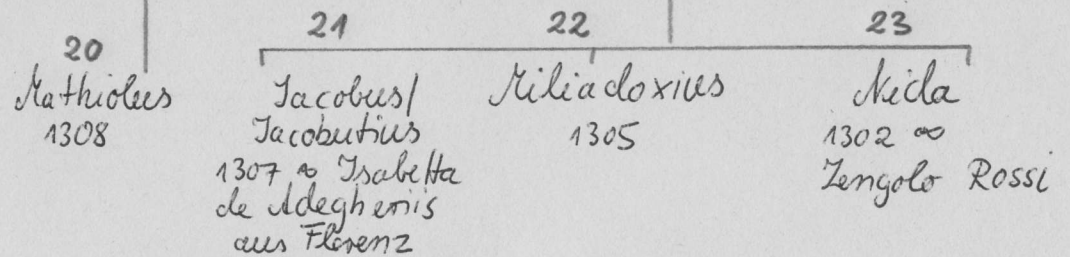 20
Mathiolus
1308
21
Jacobus/
Jacobutius
1307 ∞ Isabetta
de Adeghemis
aus Florenz
22
Miliadoxius
1305
23
Nida
1302 ∞
Zengolo Rossi